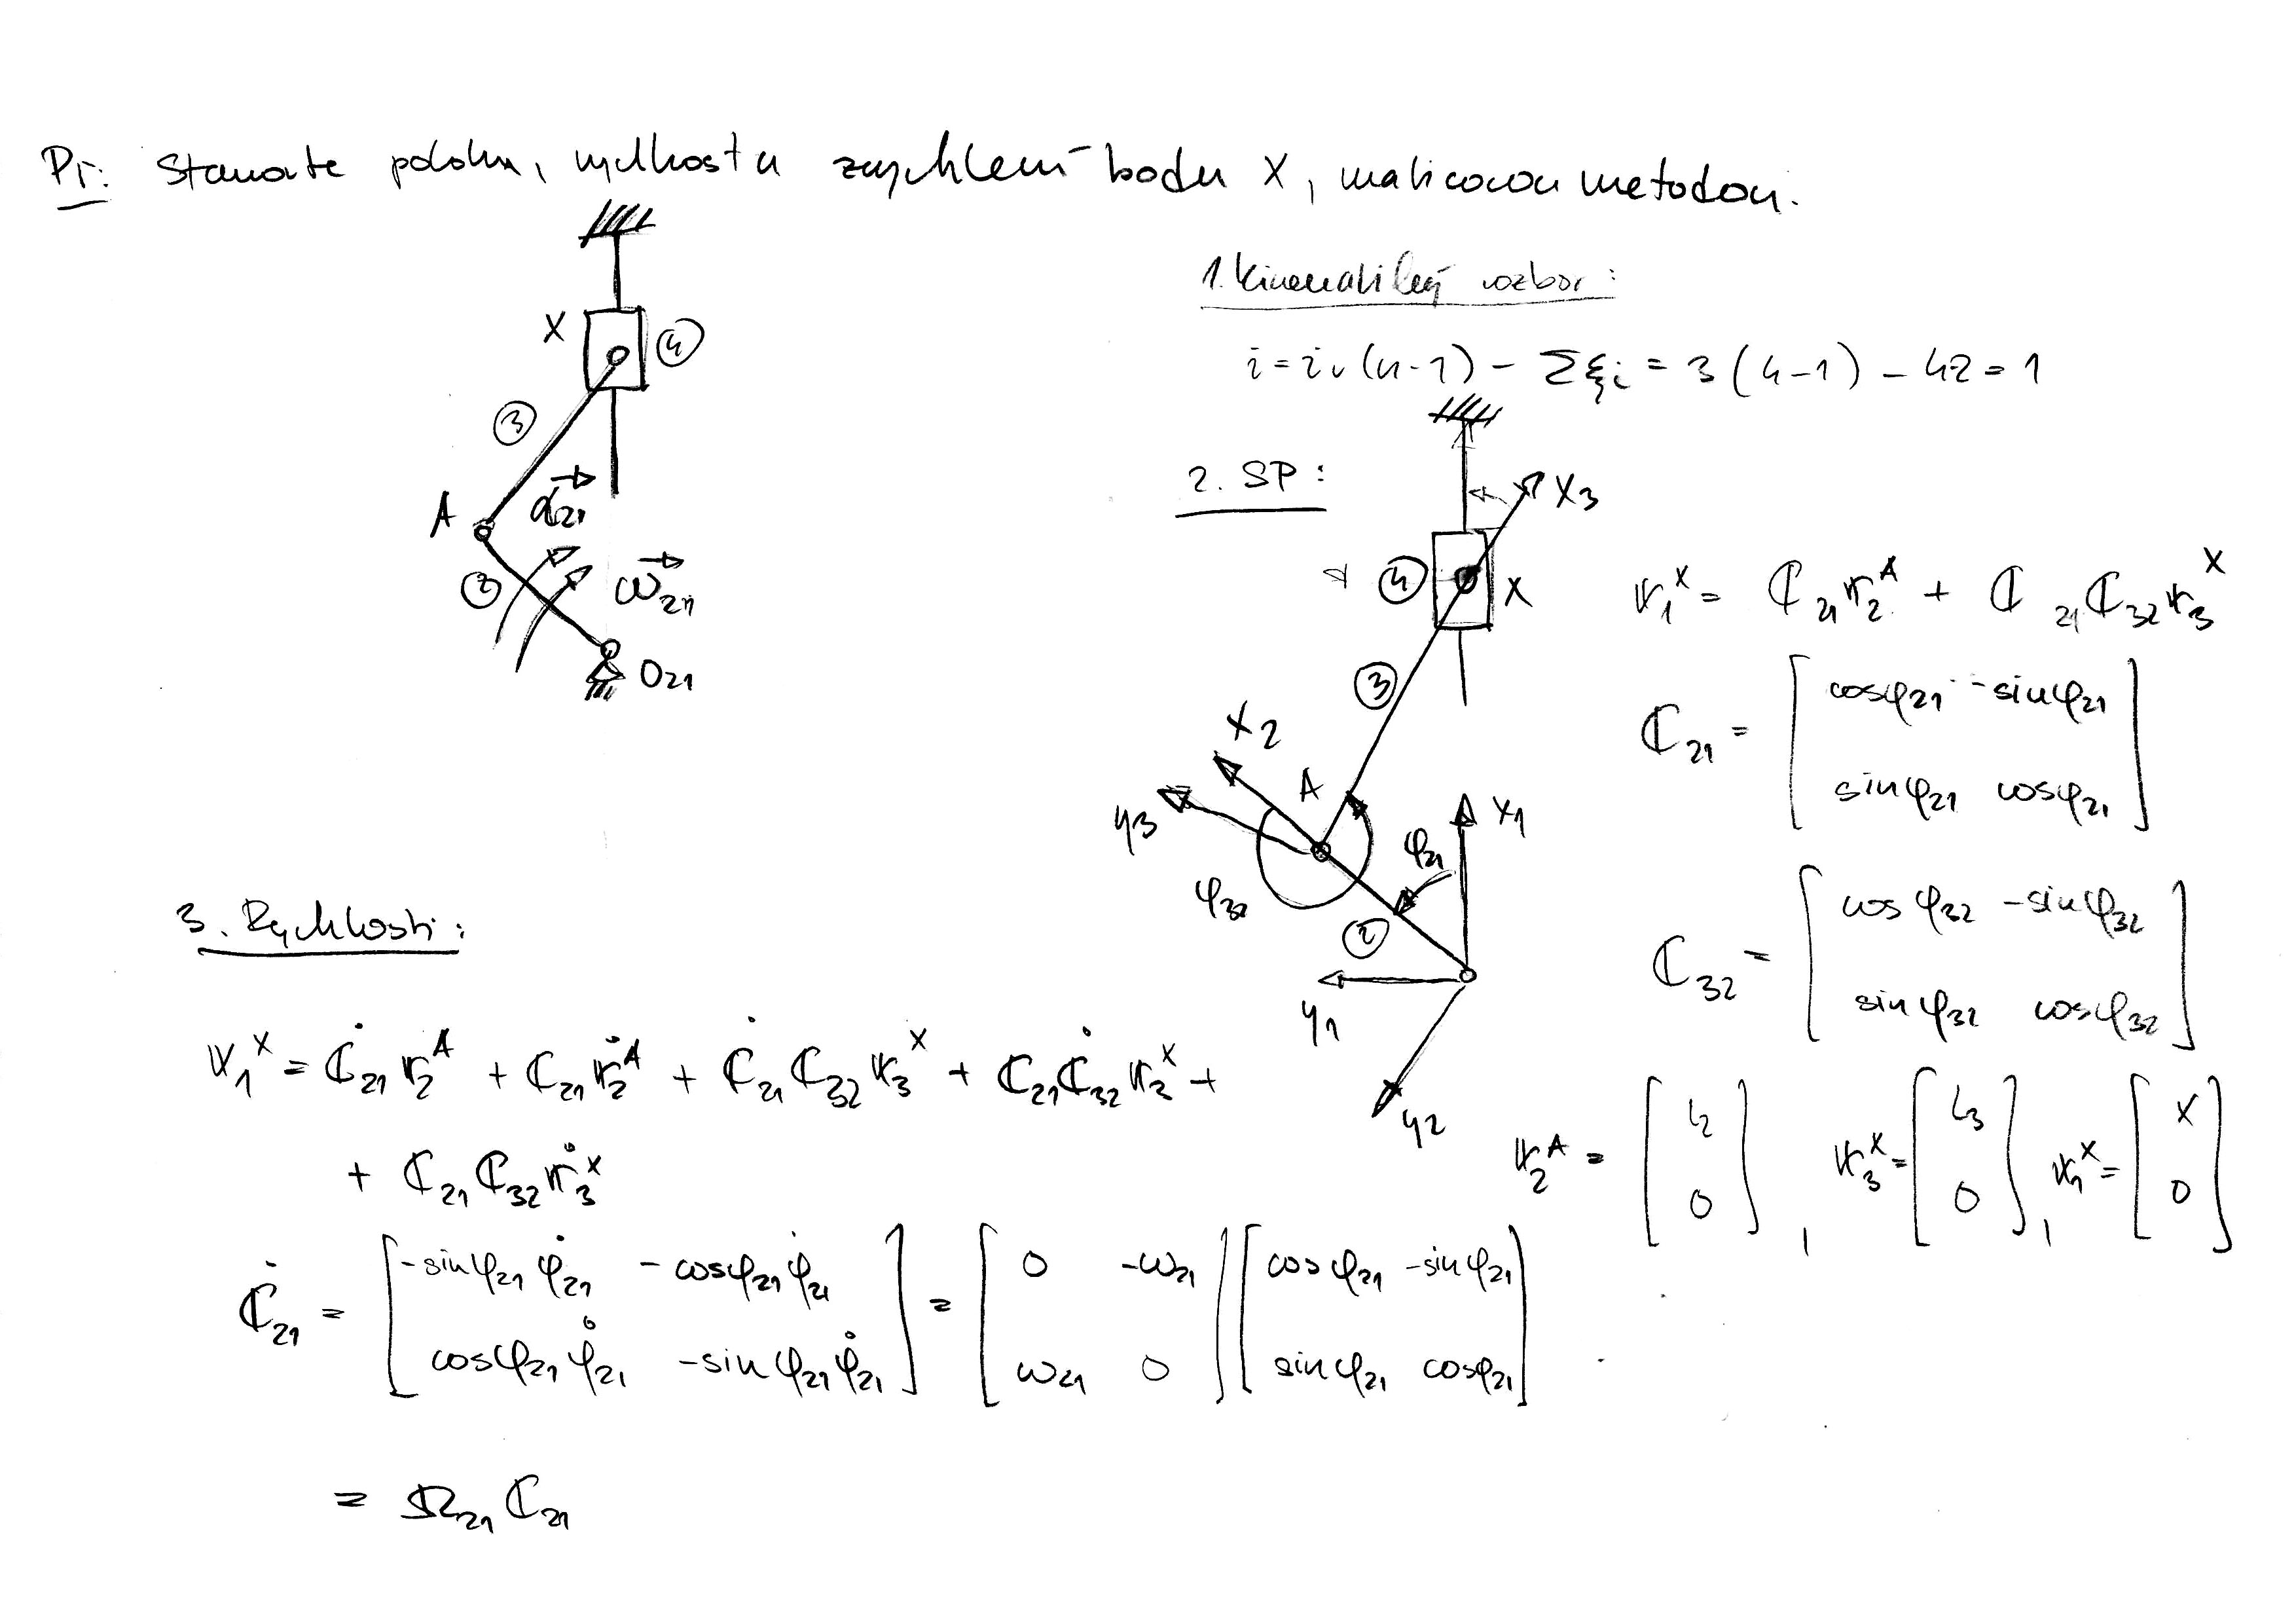 Př: Stanovte polohu, rychlost a zrychlení bodu X, maticovou metodou.
X
4
3
A
α21
2
ω21
O21
1. Kinematický rozbor:
i = iv (n-1) - Σξi = 3 (4-1) - 4·2 = 1
2. SP:
X3
4
X
3
X2
A
y3
φ32
φ21
X1
2
y1
y2
r1^X = C21 r2^A + C21 C32 r3^X
C21 = [ cosφ21 -sinφ21
sinφ21 cosφ21 ]
C32 = [ cosφ32 -sinφ32
sinφ32 cosφ32 ]
r2^A = [ l2 0 ], r3^X = [ l3 0 ], r1^X = [ X 0 ]
3. Rychlosti:
v1^X = Ċ21 r2^A + C21 ṙ2^A + Ċ21 C32 r3^X + C21 Ċ32 r3^X +
+ C21 C32 ṙ3^X
Ċ21 = [ -sinφ21 φ̇21 -cosφ21 φ̇21 ] = [ 0 -ω21 ] [ cosφ21 -sinφ21 ]
[ cosφ21 φ̇21 -sinφ21 φ̇21 ] [ ω21 0 ] [ sinφ21 cosφ21 ]
= Ω21 C21